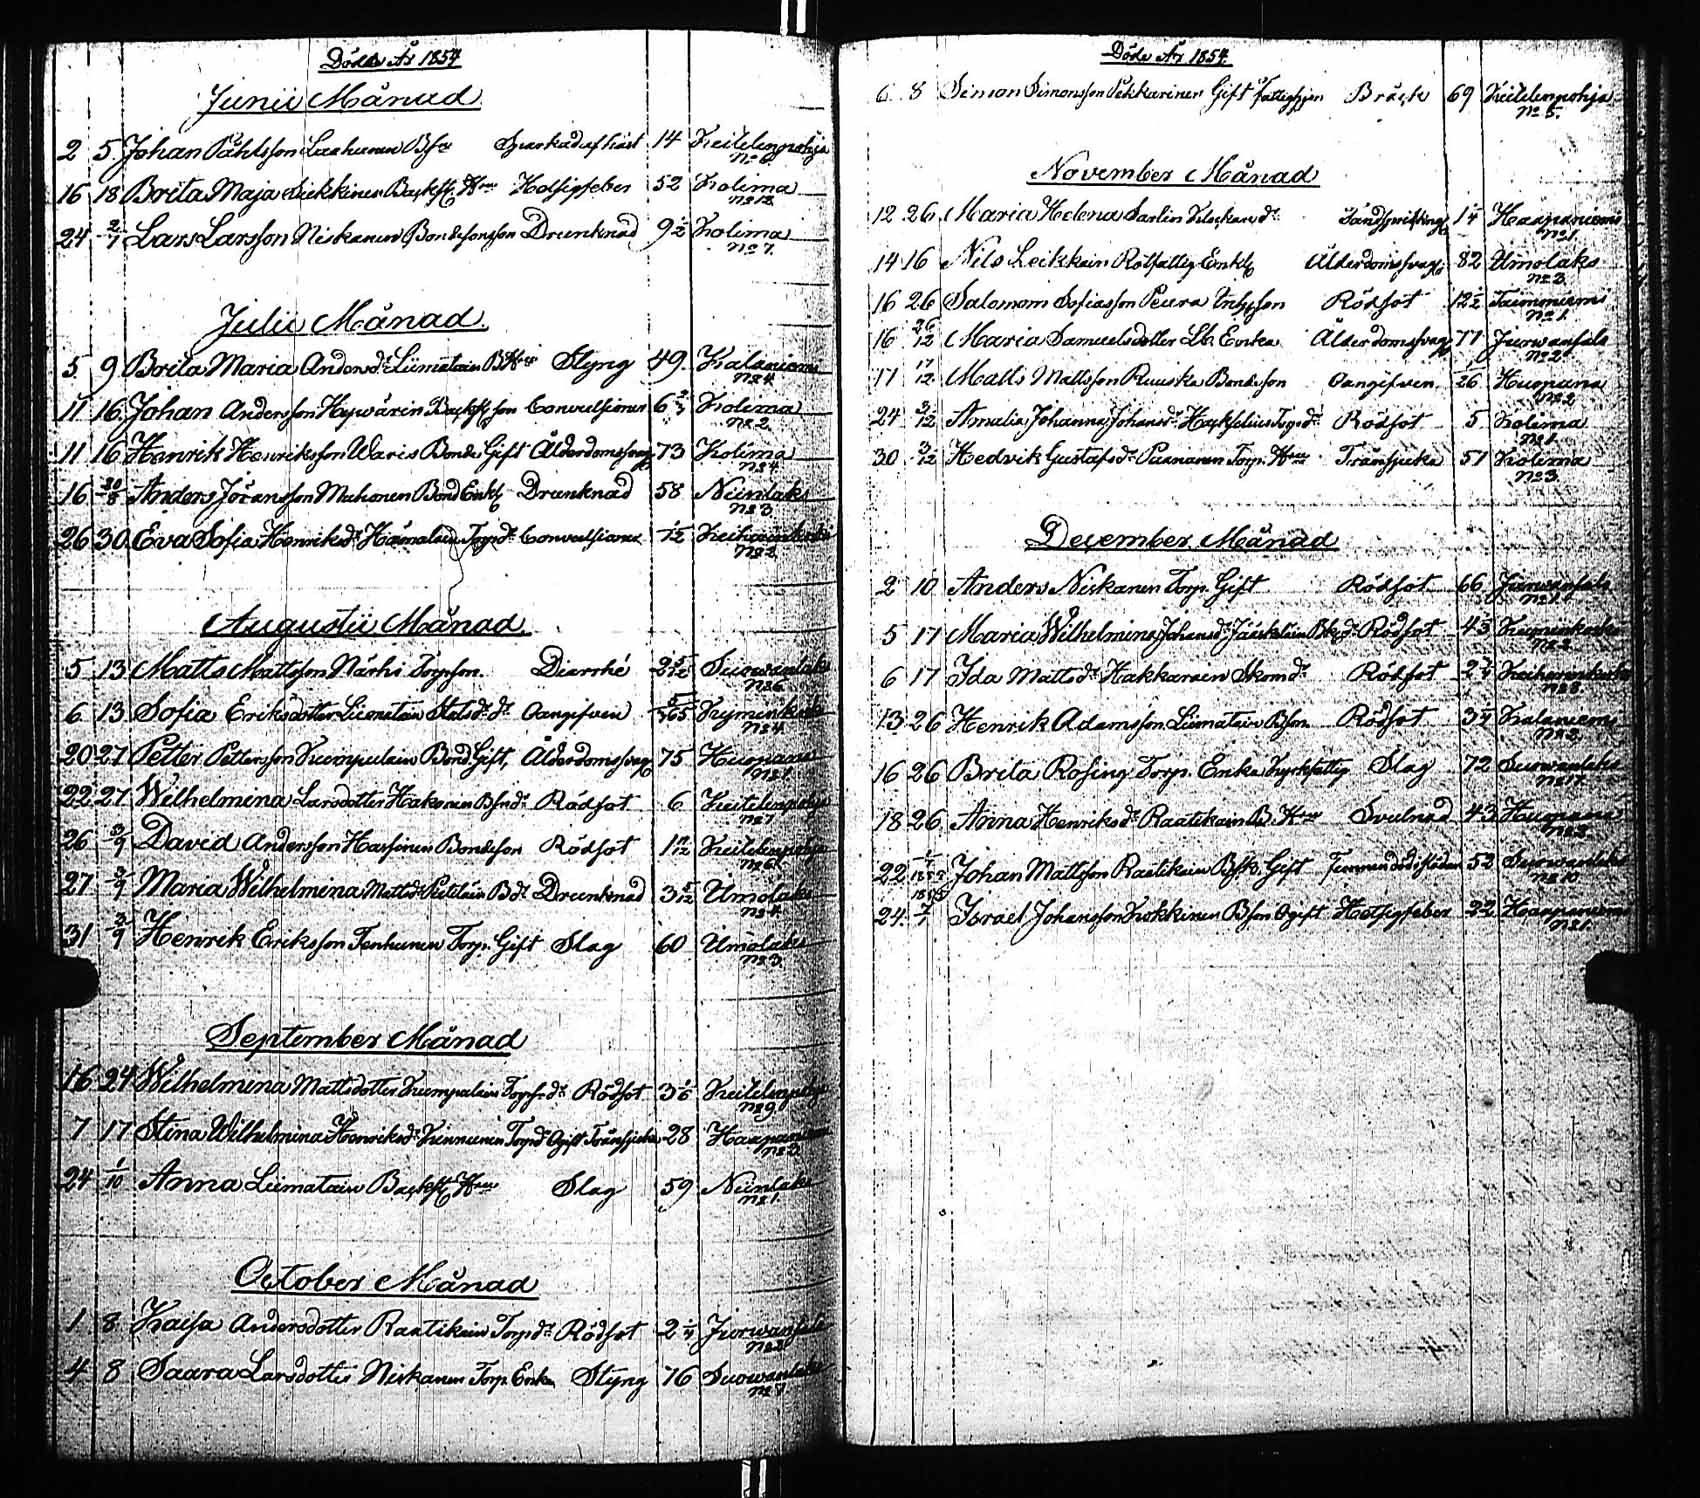 Döde År 1854
Junii Månad
2 5. Johan Påhlsson Laahunen Bson Sparkad af häst 14 Keitelenpohja
No 6.
16 18 Brita Maja Backst. Hru Hetsigfeber 52 Kolima
No 12.
24 2/7 Lars Larsson Niskanen Bondesonson Drunknad 9 1/2 Kolima
No 7.
Julii Månad
5 9 Brita Maria Andersdr Liimatain B Hru Styng 49 Kalaniemi
No 4.
11 16 Johan Andersson Hyvärin Backst son Convulsioner 6 2/3 Kolima
No 2.
11 16 Henrik Henriksson Waris Bonde Gift Ålderdomssvagh 73 Kolima
No 4
16 20/8 Anders Jöransson Muhonen Bond Enkl Drunknad 58 Niinlaks
No 3
26 30 Eva Sofia Henriksdr Hämäläin Torp dr Convulsioner 1/12 Keiharinkoski
No 2.
Augustii Månad
5 13 Matts Mattsson Närhi Torpson. Diarrhé 2 5/12 Suovanlaks
No 6.
6 13 Sofia Eriksdotter Liimatain Statsdr dr Oangifven 5/365 Kymenkoski
No 4.
20 27 Petter Pettersson Kumpulain Bond. Gift, Ålderdomssvagh 75 Huopana
No 1.
22 27 Wilhelmina Larsdotter Hakonen Bsndr Rödsot 6 Keitelenpohja
No 1
26 3/9 David Andersson Hassinen Bondeson Rödsot 1 11/12 Keitelenpohja
No 6.
27 3/9 Maria Wilhelmina Mattsdr Piitiläin B dr Drunknad 3 5/12 Ümölaks
No 4.
31 3/9 Henrik Eriksson Tenhunen Torp. Gift Slag 60 Ümölaks
No 3.
September Månad
16 24 Wilhelmina Mattsdotter Kumpulain Torp dr Rödsot 3 1/6 Keitelenpohja
No 9.
7 17 Stina Wilhelmina Henriksdr Kinnunen Torpdr Ogift Tränsjuka 28 Haapaniemi
No 3.
24 1/10 Anna Liimatain Backst. Hru Slag 59 Niinlaks
No 1.
October Månad
1 8 Kaisa Andersdotter Raatikain Torp dr Rödsot 2 1/4 Jurvansalo
No 2
4 8 Saara Larsdotter Niskanen Torp. Enka Styng 76 Suovanlaks
No 1
Döde År 1854.
6 8 Simon Simonsson Pekkarinen Gift Fattighjon Bråck 69 Keitelenpohja
No 5.
November Månad
12 26 Maria Helena Sarlin Klockare dr Tandsprickning 1 1/4 Haapaniemi
No 1.
14 16 Nils Leikkain Rotfattig Enkl Ålderdomssvagh 82 Ümölaks
No 3.
16 26 Salomom Sofiasson Peura Inhysson Rödsot 12 1/2 Taimoniemi
No 1.
16 26/12 Maria Samuelsdotter Lb. Enka Ålderdomssvagh 77 Jurvansalo
No 2.
17 17/12 Matts Mattsson Ruuska Bondeson Oangifven 1/26 Huopana
No 2
24 3/12 Amalia Johanna Johansdr Hackselius Torp dr Rödsot 5 Kolima
No 1.
30 3/12 Hedvik Gustafsdr Paananen Torp. Hru Tränsjuka 51 Kolima
No 3.
December Månad
2 10 Anders Niskanen Torp. Gift Rödsot 66 Jurvansalo
No 1.
5 17 Maria Wilhelmina Johansdr Jääskeläin Bkr dr Rödsot 4 3/4 Kymenkoski
No 2.
6 17 Ida Mattsdr Hakkarain Skom dr Rödsot 2 3/4 Keiharinkoski
No 8.
13 26 Henrik Adamsson Liimatain Bson Rödsot 3 1/4 Kalaniemi
No 2.
16 26 Brita Rosing Torp. Enka Kyrkfattig Slag 72 Suovanlaks
No 17.
18 26 Anna Henriksdr Raatikain B. Hru Svulnad 43 Huopana
No 3.
22 Johan Mattsson Raatikain Gift 53 Suovanlaks
No 10
24. 1855 7/1 Israel Johansson Kokkinen Bson Ogift Hetsigfeber 22 Haapaniemi
No 1.